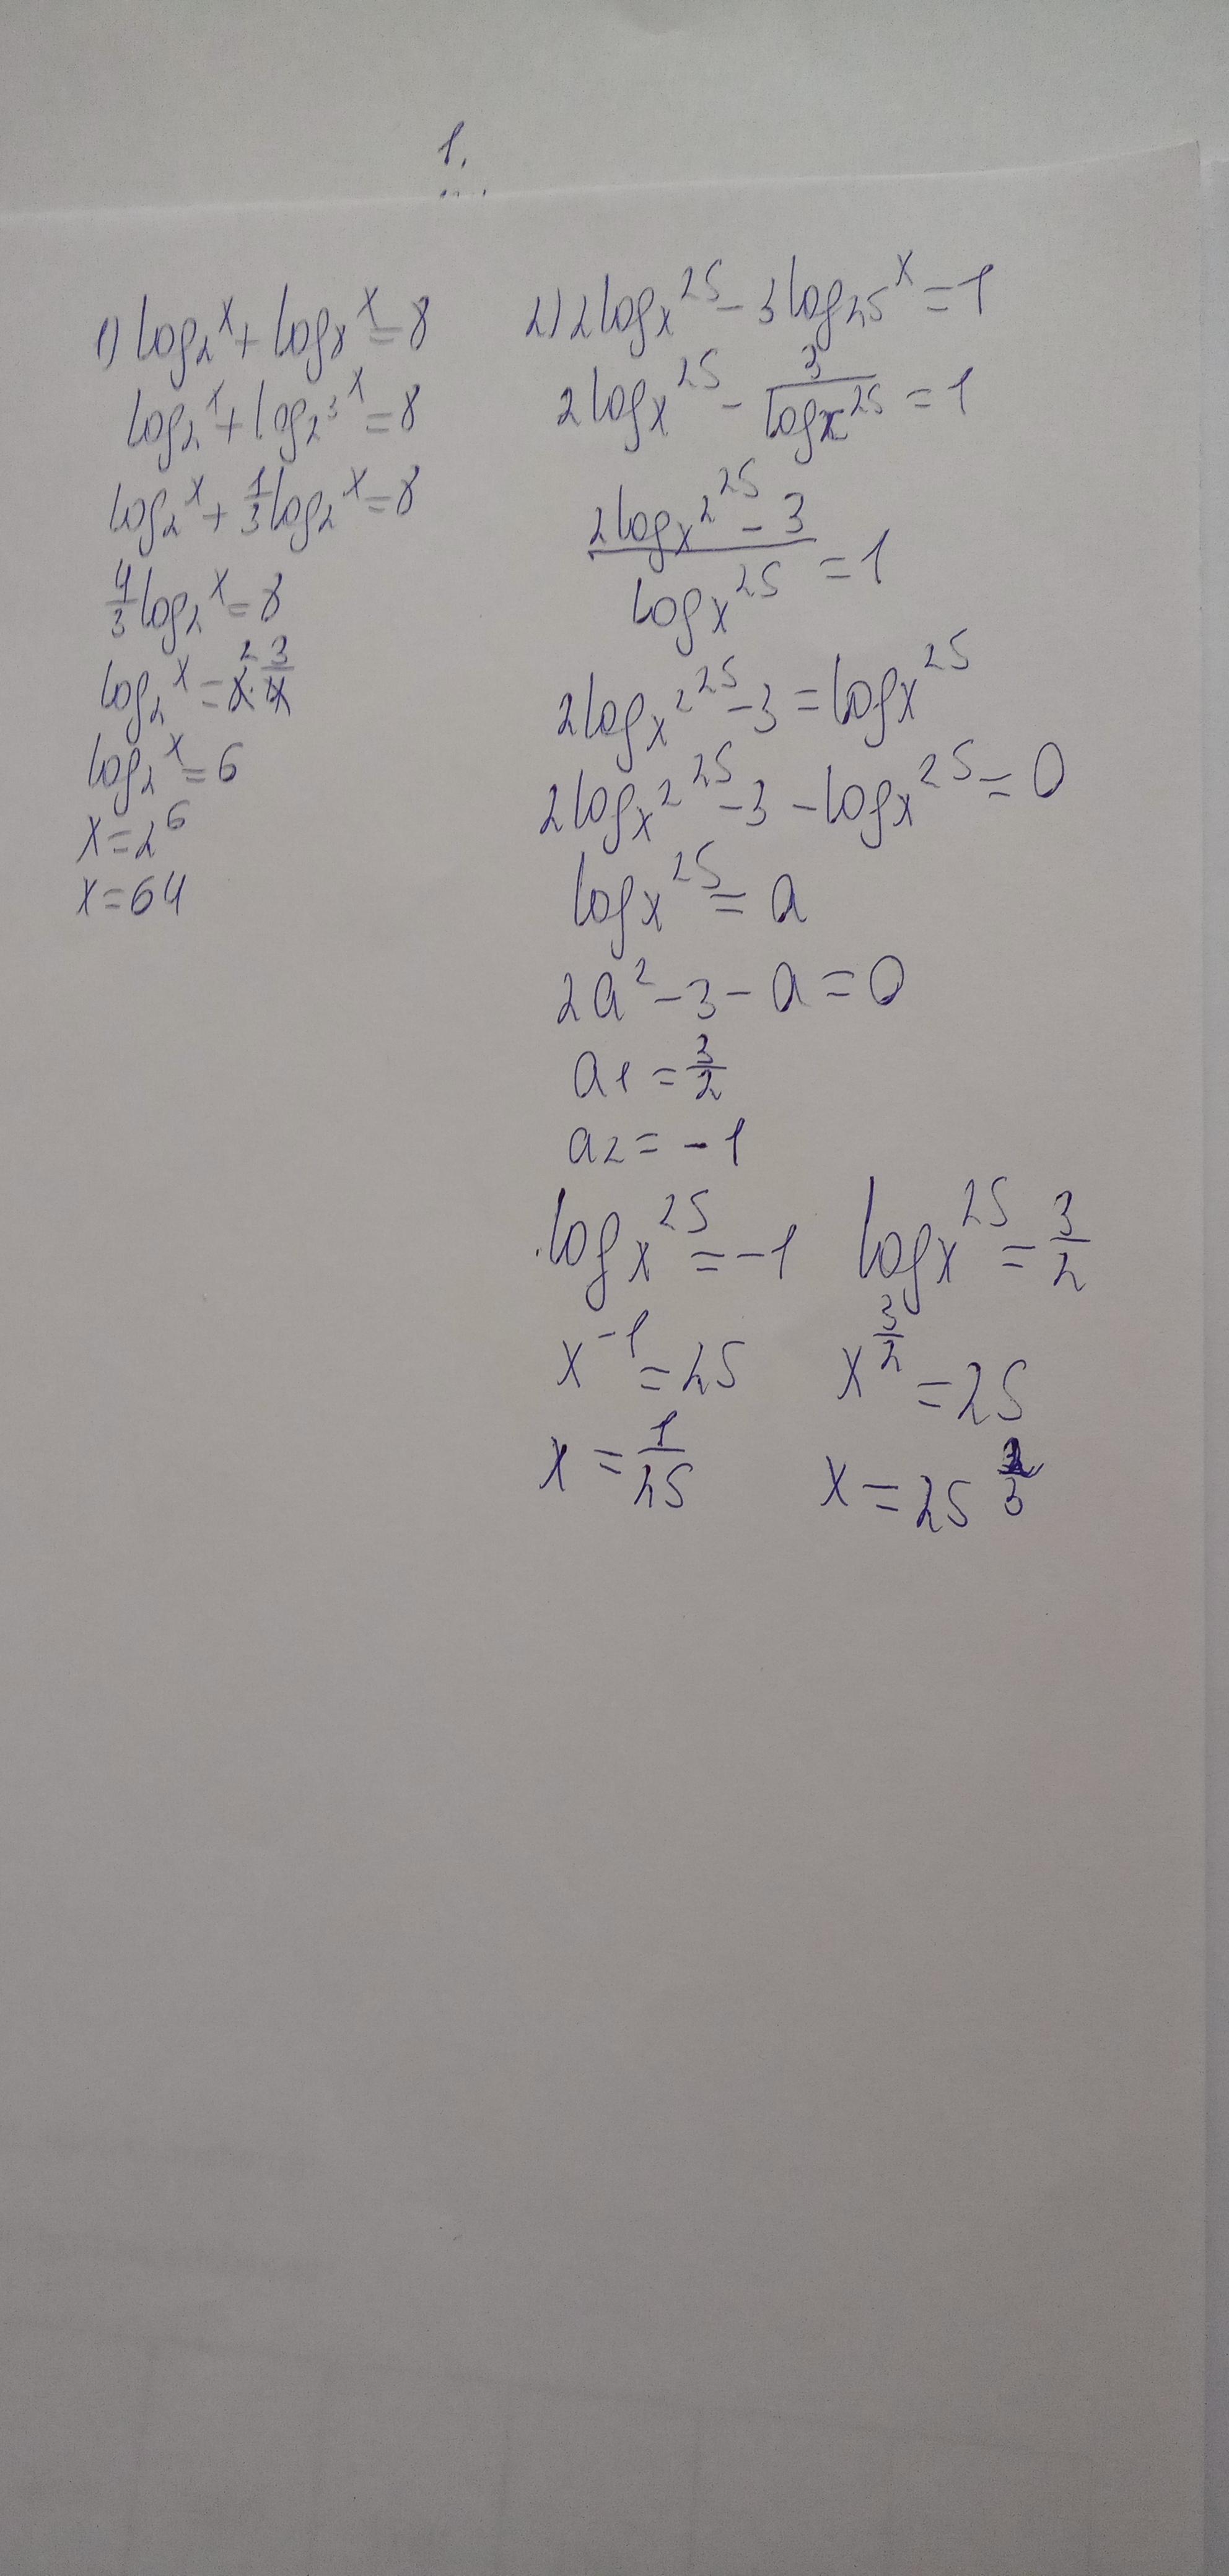 1.
1) log₂ˣ + log₈ˣ = 8
log₂ˣ + log₂³ˣ = 8
log₂ˣ + 1/3 log₂ˣ = 8
4/3 log₂ˣ = 8
log₂ˣ = 8² · 3/4
log₂ˣ = 6
x = 2⁶
x = 64
2) 2logₓ²⁵ - 3log₂₅ˣ = 1
2logₓ²⁵ - 3/logₓ²⁵ = 1
(2logₓ² ²⁵ - 3)/logₓ²⁵ = 1
2logₓ² ²⁵ - 3 = logₓ²⁵
2logₓ² ²⁵ - 3 - logₓ²⁵ = 0
logₓ²⁵ = a
2a² - 3 - a = 0
a₁ = 3/2
a₂ = -1
logₓ²⁵ = -1 logₓ²⁵ = 3/2
x⁻¹ = 25 x^(3/2) = 25
x = 1/25 x = 25^(2/3)